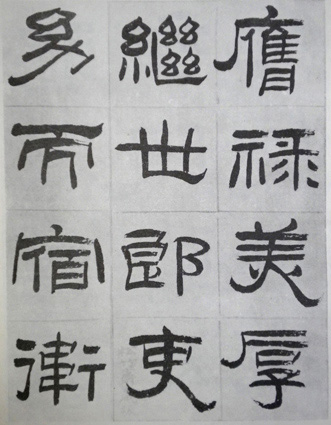 膺禄美厚
繼世郎吏
幼而宿衛